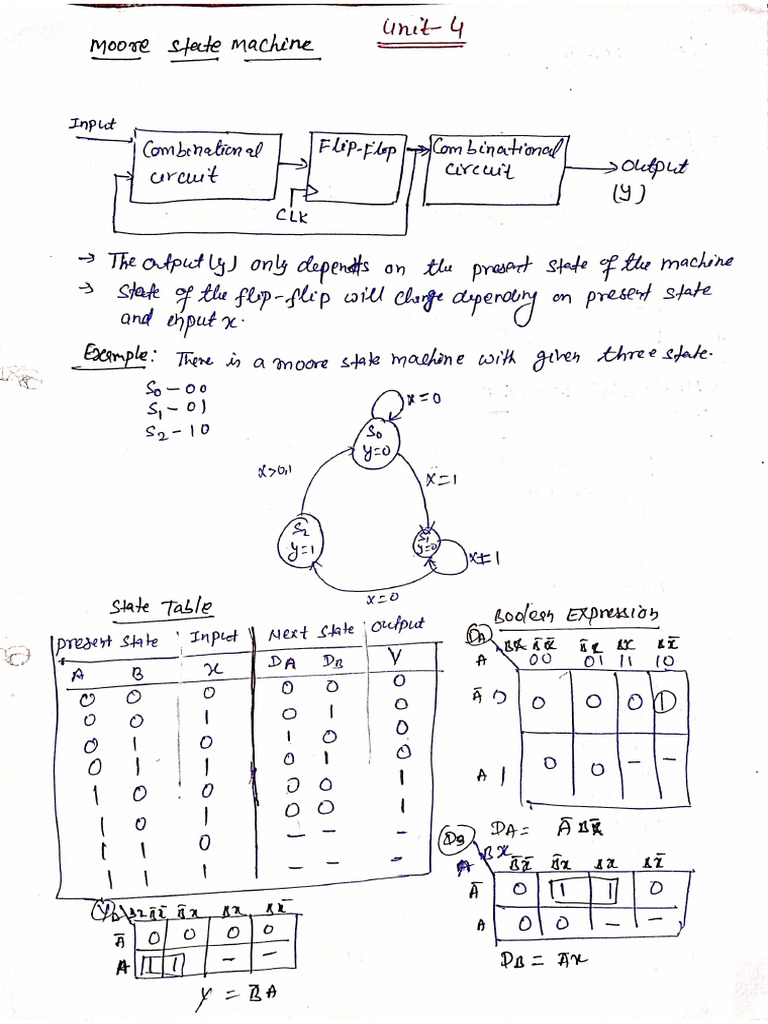 Unit-4
Moore State Machine
Input
Combinational circuit
Flip-Flop
CLK
Combinational circuit
Output (y)
→ The output(y) only depends on the present state of the machine
→ State of the flip-flip will change depending on present state
and input x.
Example: There is a moore state machine with given three state.
S0 - 00
S1 - 01
S2 - 10
x=0
S0
y=0
x>0,1
x=1
S2
y=1
S1
y=0
x=1
x=0
State Table
Present State Input Next State Output
A B x DA DB Y
0 0 0 0 0 0
0 0 1 0 1 0
0 1 0 1 0 0
0 1 1 0 1 0
1 0 0 0 0 1
1 0 1 0 0 1
1 1 0 - - -
1 1 1 - - -
Boolean Expression
DA
Bx B̅x̅ B̅x Bx Bx̅
A 00 01 11 10
A̅ 0 0 0 0 1
A 1 0 0 - -
DA = A̅Bx̅
DB
A Bx B̅x̅ B̅x Bx Bx̅
A̅ 0 1 1 0
A 0 0 - -
DB = A̅x
Y
B̅x̅ B̅x Bx Bx̅
A̅ 0 0 0 0
A 1 1 - -
Y = B̅A